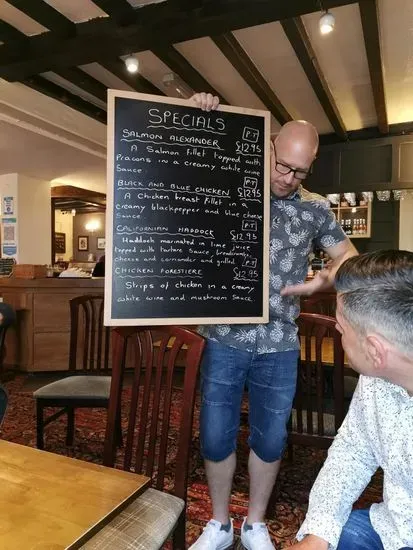 SPECIALS P.T
SALMON ALEXANDER £12.95
A Salmon fillet topped with
Prawns in a creamy white wine
Sauce.
BLACK AND BLUE CHICKEN P.T £12.95
A Chicken breast fillet in a
creamy blackpepper and blue cheese
Sauce.
CALIFORNIAN HADDOCK P.T £12.95
Haddock marinated in lime juice
topped with tartare Sauce, breadcrumbs,
cheese and coriander and grilled
CHICKEN FORESTIERE P.T £12.95
Strips of chicken in a creamy
white wine and mushroom Sauce.